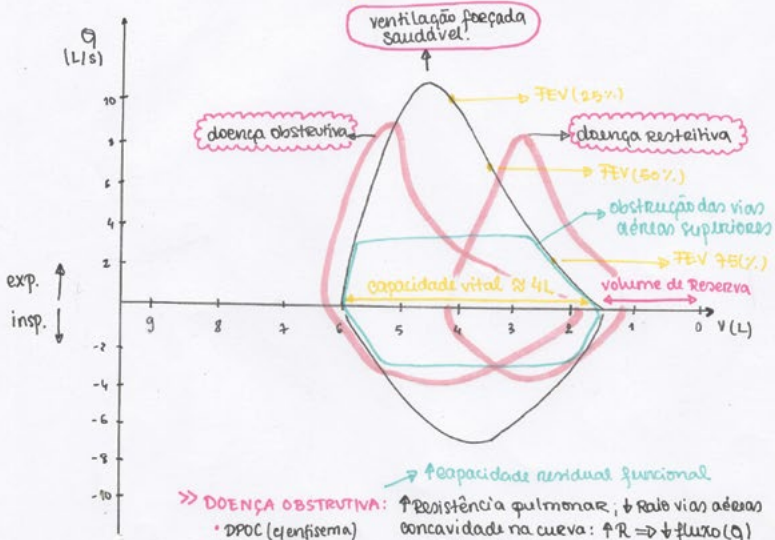 Q
(L/s)
ventilação forçada
saudável.
10
8
6
4
2
-2
-4
-6
-8
-10
exp.
insp.
9
8
7
6
5
4
3
2
1
0
V(L)
doença obstrutiva
doença restritiva
FEV (25%)
FEV (50%)
obstrução das vias
aéreas superiores
FEV 75(%)
capacidade vital ≈ 4L
volume de Reserva
↑ capacidade residual funcional
>> DOENÇA OBSTRUTIVA: ↑ Resistência pulmonar; ↓ Raio vias aéreas
• DPOC (ej enfisema)
concavidade na curva: ↑R ⇒ ↓ fluxo (Q)